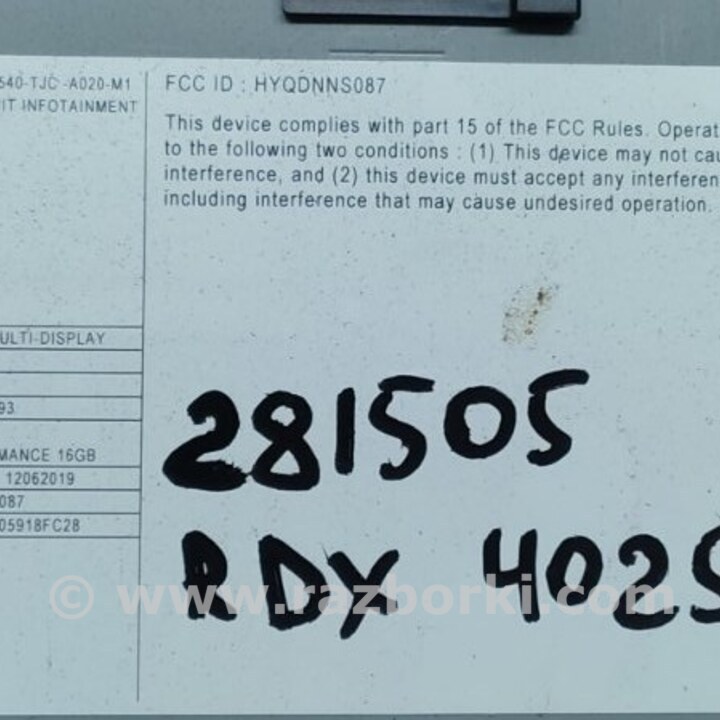 540-TJC-A020-M1
IT INFOTAINMENT
ULTI-DISPLAY
93
MANCE 16GB
12062019
087
05918FC28
FCC ID : HYQDNNS087
This device complies with part 15 of the FCC Rules. Operat
to the following two conditions : (1) This device may not cau
interference, and (2) this device must accept any interferen
including interference that may cause undesired operation.
281505
RDX 4025
© www.razborki.com